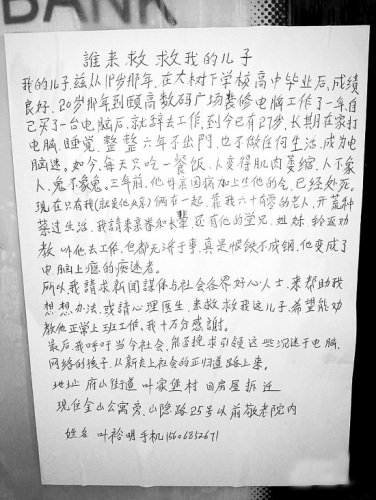 BANK
誰来救救我的儿子
我的儿子兹从18岁那年,在大树下学校高中毕业后,成绩
良好,20岁那年到颐高数码广场装修电脑工作了一年自
己买了一台电脑后,就辞去工作,到今已有27岁,长期在家打
电脑,睡觉,整整六年不出门,也不做任何生活,成为电
脑迷。如今,每天只吃一餐饭、人变得肌肉萎缩,人不象
人,鬼不象鬼。三年前,他母亲因病加上生他的气,已经处死。
现在只有我(就是他父亲)俩在一起,靠我六十有零的老人,开荒种
菜过生活、我請来亲眷和长輩,还有他的堂兄、姐妹,轮流劝
教,叫他去工作,但都无济于事,真是恨铁不成钢,他变成了
电脑上瘾的痴迷者。
所以我请求新闻媒体与社会各界好心人士,来帮助我
想想办法,或請心理医生,来救救我这儿子,希望能劝
教他正常上班工作,我十万分感謝。
最后,我呼吁当今社会,能否挽求引领这些沉迷于电脑,
网络的孩子,从新走上社会的正归道路上来。
地址 府山街道 叶家堡村 因房屋拆迁
现住金山公寓旁,山隐路25号以前敬老院内
姓名 叶裕明手机15606852671